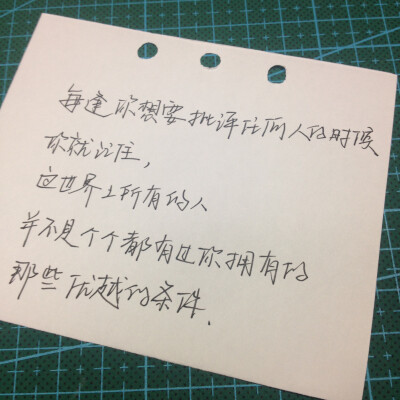 每逢你想要批评任何人的时候
你就记住，
这世界上所有的人
并不是个个都有过你拥有的
那些优越的条件.